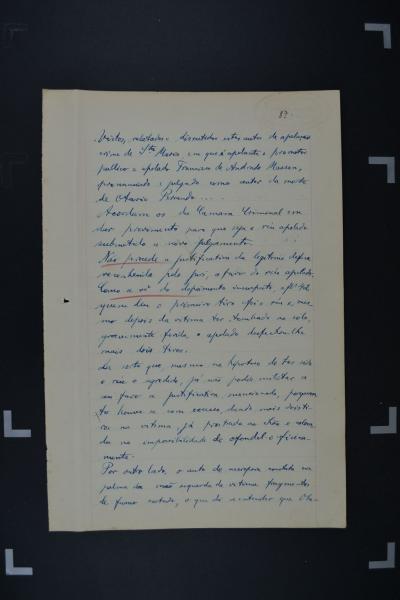 89.
Vistos, relatados e discutidos estes autos de apelação
crime de Sta Maria, em que é apelante o promotor
publico e apelado Francisco de Andrade
pronunciado e julgado como autor da morte
de Otavio
Acordam os da Camara Criminal em
dar provimento para que seja o réu apelado
submetido a novo julgamento.
Não procede a justificativa da legitima defesa
reconhecida pelo juri, a favor do réu apelado.
Como se vê do depoimento
quem deu o primeiro tiro foi o réu e mes-
mo depois da vitima ter tombado no solo,
gravemente ferida, o apelado desfechou-lhe
mais dois tiros.
De sorte que, mesmo na hipotese de ter sido
o réu o agredido, já não podia militar a
seu favor a justificativa mencionada, porquan-
to houve excesso, dando mais dois ti-
ros na vitima, já prostrada no chão e coloca-
da na impossibilidade de ofendel-o fisica-
mente.
Por outro lado, o auto de necropsia constata na
palma da mão esquerda da vitima fragmentos
de fumo cortado, o que dá a entender que Ota-